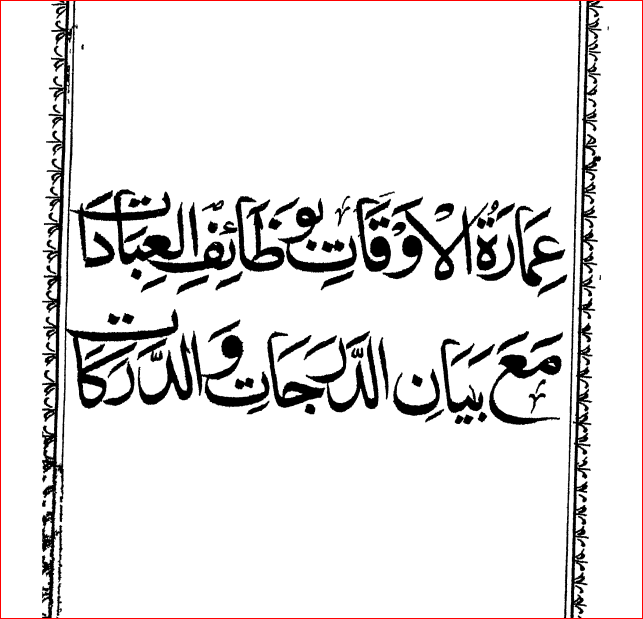 عِمَارَةُ الْأَوْقَاتِ بِوَظَائِفِ الْعِبَادَاتِ
مَعَ بَيَانِ الدَّرَجَاتِ وَالدَّرَكَاتِ